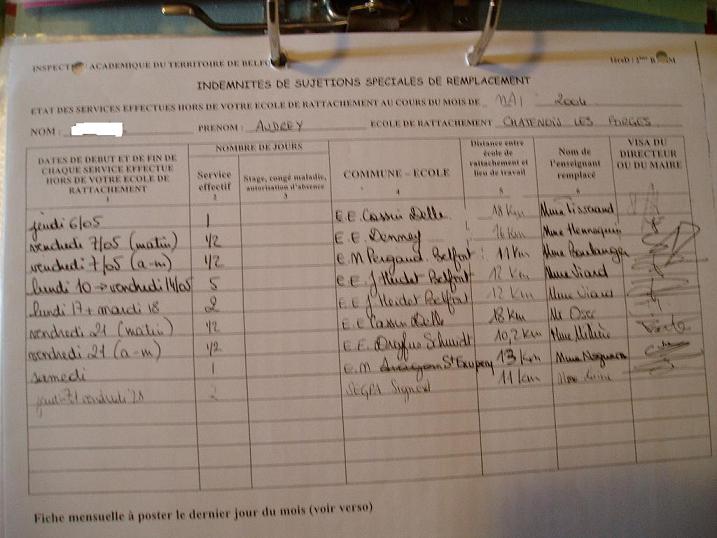 INSPECTION ACADEMIQUE DU TERRITOIRE DE BELFORT
INDEMNITES DE SUJETIONS SPECIALES DE REMPLACEMENT
ETAT DES SERVICES EFFECTUES HORS DE VOTRE ECOLE DE RATTACHEMENT AU COURS DU MOIS DE MAI 2004
NOM : PRENOM : AUDREY ECOLE DE RATTACHEMENT CHATENOIS LES FORGES
DATES DE DEBUT ET DE FIN DE CHAQUE SERVICE EFFECTUE HORS DE VOTRE ECOLE DE RATTACHEMENT 1
NOMBRE DE JOURS
Service effectif 2
Stage, congé maladie, autorisation d'absence 3
COMMUNE – ECOLE 4
Distance entre école de rattachement et lieu de travail 5
Nom de l'enseignant remplacé 6
VISA DU DIRECTEUR OU DU MAIRE
jeudi 6/05 1 E.E. Cassin Delle 18 Km Mme Tisserand
vendredi 7/05 (matin) 1/2 E.E. Denney 16 Km Mme Hennequin
vendredi 7/05 (a-m) 1/2 E.M. Pergaud Belfort 11 Km Mme Boulanger
lundi 10 → vendredi 14/05 5 E.E. J Heidet Belfort 12 Km Mme Viard
lundi 17 + mardi 18 2 E.E. J Heidet Belfort 12 Km Mme Viard
vendredi 21 (matin) 1/2 E.E. Cassin Delle 18 Km
vendredi 21 (a-m) 1/2 E.E. Dreyfus Schmidt 10,2 Km Mme
samedi 1 E.M. St Exupery 13 Km Mme
2 SEGPA Signoret 11 km Mme
Fiche mensuelle à poster le dernier jour du mois (voir verso)